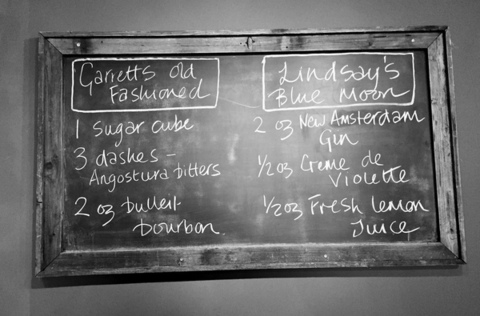 Garetts Old
Fashioned
1 sugar cube
3 dashes -
Angostura bitters
2 oz bulleit
bourbon
Lindsay's
Blue Moon
2 oz New Amsterdam
Gin
1/2 oz Creme de
Violette
1/2 oz Fresh lemon
Juice